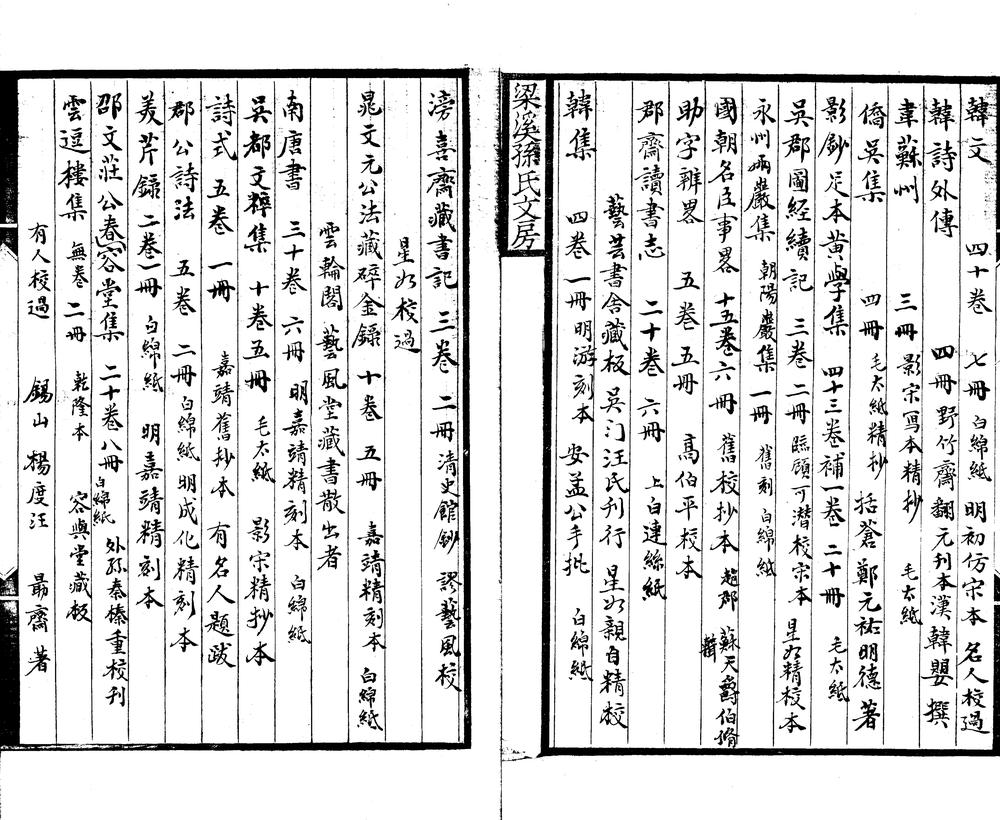 韓文　四十卷　七冊 白綿紙　明初仿宋本　名人校過
韓詩外傳　四冊 野竹齋翻元刊本 漢韓嬰撰
韋蘇州　三冊 影宋寫本精抄　毛太紙
僑吳集　四冊 毛太紙精抄　括蒼鄭元祐明德著
影鈔足本黃學集　四十三卷補一卷　二十冊　毛太紙
吳郡圖經續記　三卷　二冊 臨顧可潛校宋本　星如精校本
永州兩巖集　朝陽巖集　一冊　舊刻　白綿紙
國朝名臣事畧　十五卷　六冊　舊校抄本　趙郡蘇天爵伯脩輯
助字辨畧　五卷　五冊　高伯平校本
郡齋讀書志　二十卷　六冊　上白連絲紙
藝芸書舍藏板　吳门汪氏刊行　星如親自精校
韓集　四卷　一冊　明游刻本　安孟公手批　白綿紙
梁溪孫氏文房
滂喜齋藏書記　三卷　二冊 清史館鈔　謬藝風校
星如校過
晁文元公法藏碎金錄　十卷　五冊　嘉靖精刻本　白綿紙
雲輪閣　藝風堂藏書散出者
南唐書　三十卷　六冊　明嘉靖精刻本　白綿紙
吳都文粹集　十卷　五冊　毛太紙　影宋精抄本
詩式　五卷　一冊　嘉靖舊抄本　有名人題跋
郡公詩法　五卷　二冊 白綿紙　明成化精刻本
美芹錄　二卷　一冊　白綿紙　明嘉靖精刻本
邵文莊公春(容堂集　二十卷　八冊 白綿紙　外孫秦榛重校刊
雲逗樓集　無卷　二冊　乾隆本　容與堂藏板
有人校過　錫山　楊度汪　最齋　著